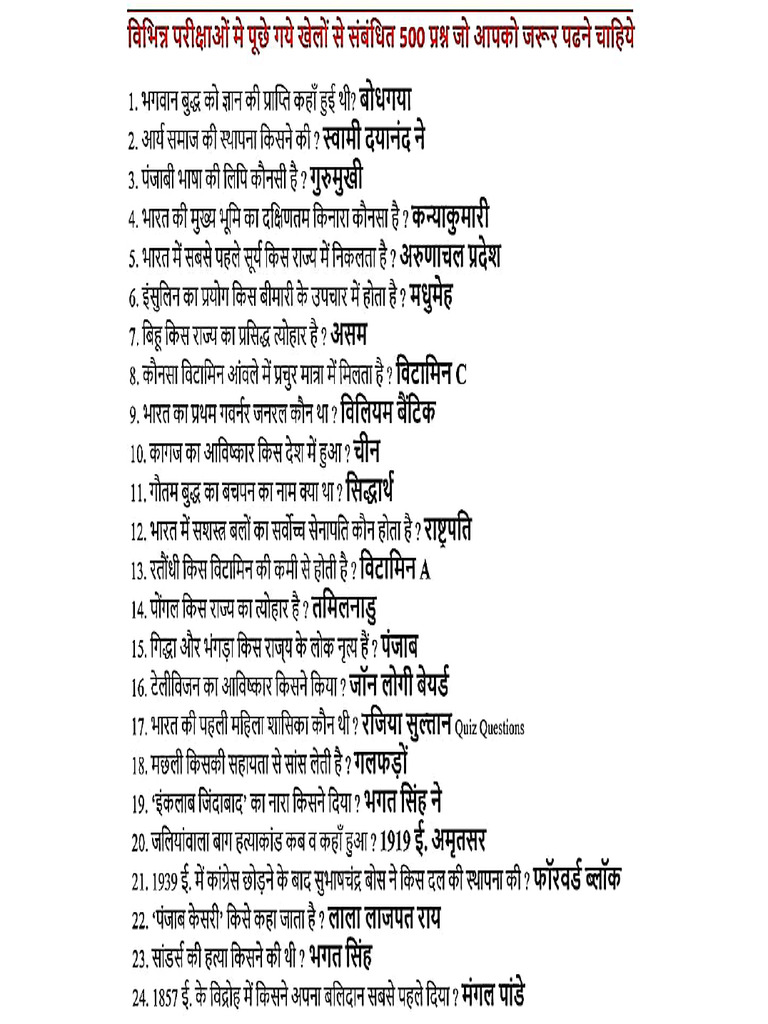 विभिन्न परीक्षाओं मे पूछे गये खेलों से संबंधित 500 प्रश्न जो आपको जरूर पढने चाहिये
1. भगवान बुद्ध को ज्ञान की प्राप्ति कहाँ हुई थी? बोधगया
2. आर्य समाज की स्थापना किसने की ? स्वामी दयानंद ने
3. पंजाबी भाषा की लिपि कौनसी है ? गुरुमुखी
4. भारत की मुख्य भूमि का दक्षिणतम किनारा कौनसा है ? कन्याकुमारी
5. भारत में सबसे पहले सूर्य किस राज्य में निकलता है ? अरुणाचल प्रदेश
6. इंसुलिन का प्रयोग किस बीमारी के उपचार में होता है ? मधुमेह
7. बिहू किस राज्य का प्रसिद्ध त्योहार है ? असम
8. कौनसा विटामिन आंवले में प्रचुर मात्रा में मिलता है ? विटामिन C
9. भारत का प्रथम गवर्नर जनरल कौन था ? विलियम बैंटिक
10. कागज का आविष्कार किस देश में हुआ ? चीन
11. गौतम बुद्ध का बचपन का नाम क्या था ? सिद्धार्थ
12. भारत में सशस्त्र बलों का सर्वोच्च सेनापति कौन होता है ? राष्ट्रपति
13. रतौंधी किस विटामिन की कमी से होती है ? विटामिन A
14. पोंगल किस राज्य का त्योहार है ? तमिलनाडु
15. गिद्धा और भंगड़ा किस राज्य के लोक नृत्य हैं ? पंजाब
16. टेलीविजन का आविष्कार किसने किया ? जॉन लोगी बेयर्ड
17. भारत की पहली महिला शासिका कौन थी ? रजिया सुल्तान Quiz Questions
18. मछली किसकी सहायता से सांस लेती है ? गलफड़ों
19. ‘इंकलाब जिंदाबाद’ का नारा किसने दिया ? भगत सिंह ने
20. जलियांवाला बाग हत्याकांड कब व कहाँ हुआ ? 1919 ई. अमृतसर
21. 1939 ई. में कांग्रेस छोड़ने के बाद सुभाषचंद्र बोस ने किस दल की स्थापना की ? फॉरवर्ड ब्लॉक
22. ‘पंजाब केसरी’ किसे कहा जाता है ? लाला लाजपत राय
23. सांडर्स की हत्या किसने की थी ? भगत सिंह
24. 1857 ई. के विद्रोह में किसने अपना बलिदान सबसे पहले दिया ? मंगल पांडे